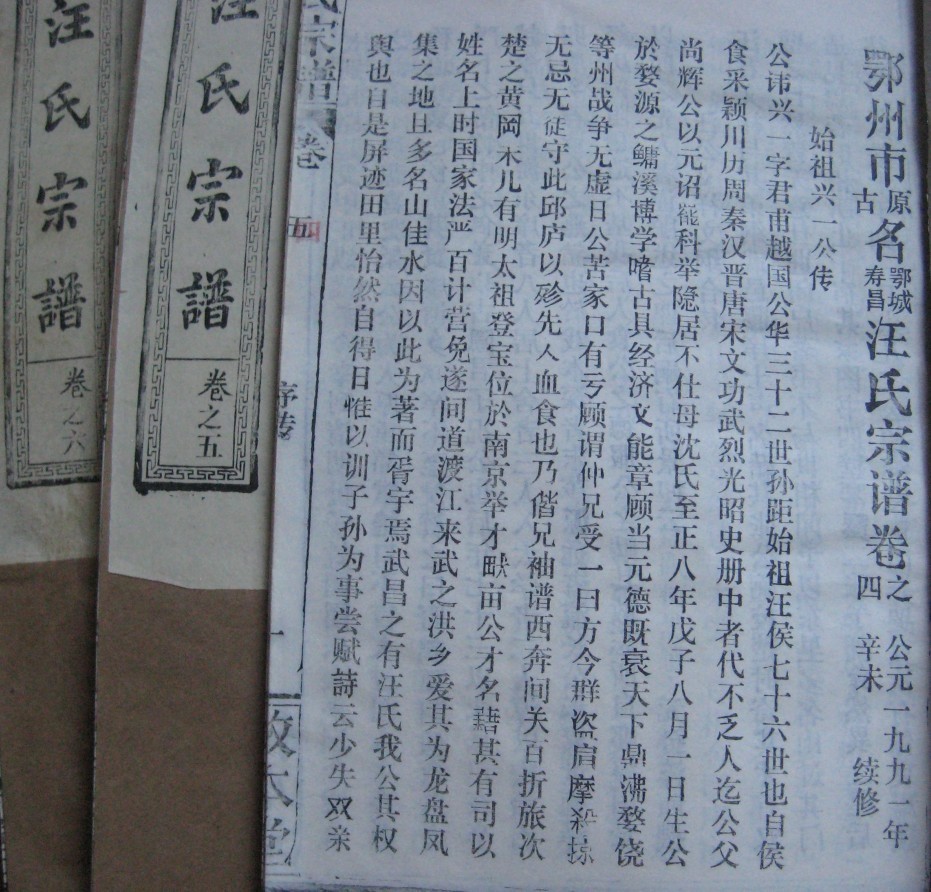 鄂州市原名鄂城古寿昌汪氏宗谱卷之四 公元一九九一年辛未续修
始祖兴一公传
公讳兴一字君甫越国公华三十二世孙距始祖汪侯七十六世也自侯
食采颖川历周秦汉晋唐宋文功武烈光昭史册中者代不乏人迄公父
尚辉公以元诏罷科举隐居不仕母沈氏至正八年戊子八月一日生公
於婺源之鳙溪博学嗜古具经济文能章顾当元德既衰天下鼎沸婺饶
等州战争无虚日公苦家口有亏顾谓仲兄受一曰方今群盗肩摩殺掠
无忌无徒守此邱庐以殄先人血食也乃偕兄袖谱西奔间关百折旅次
楚之黄岡未儿有明太祖登宝位於南京举才畎亩公才名藉甚有司以
姓名上时国家法严百计营免遂间道渡江来武之洪乡爱其为龙盘凤
集之地且多名山佳水因以此为著而胥宇焉武昌之有汪氏我公其权
舆也自是屏迹田里怡然自得日惟以训子孙为事尝赋詩云少失双亲
氏宗譜
卷
五四
序传
一
敦本堂
汪氏宗譜
卷之五
汪氏宗譜
卷之六